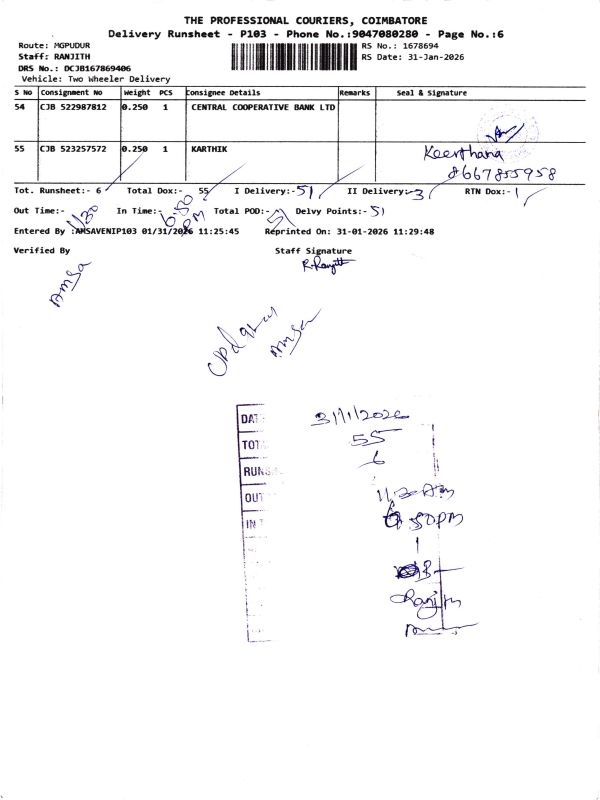 THE PROFESSIONAL COURIERS, COIMBATORE
Delivery Runsheet - P103 - Phone No.:9047080280 - Page No.:6
Route: MGPUDUR
RS No.: 1678694
Staff: RANJITH
RS Date: 31-Jan-2026
DRS No.: DCJB167869406
Vehicle: Two Wheeler Delivery
S No Consignment No Weight PCS Consignee Details Remarks Seal & Signature
54 CJB 522987812 0.250 1 CENTRAL COOPERATIVE BANK LTD
55 CJB 523257572 0.250 1 KARTHIK Keerthana
8667855958
Tot. Runsheet:- 6 Total Dox:- 55 I Delivery:-51 II Delivery:-3 RTN Dox:-1
Out Time:- 11/30 In Time:- 6:50 PM Total POD:- 51 Delvy Points:- 51
Entered By :AMSAVENIP103 01/31/2026 11:25:45 Reprinted On: 31-01-2026 11:29:48
Verified By Staff Signature
Amsa R.Ranjith
Amsa
DAT 31/1/2026
TOT 55
RUNS 6
OUT
IN T 6 50PM
1
Ranjith